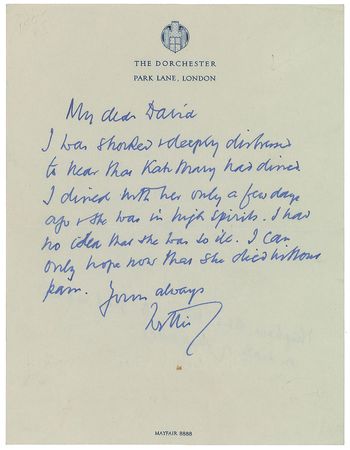 THE DORCHESTER
PARK LANE, LONDON
My dear David
I was shocked & deeply distressed
to hear that Kath Mary had died
I dined with her only a few days
ago & she was in high spirits. I had
no idea that she was so ill. I can
only hope now that she died without
pain. Yours always
MAYFAIR 8888